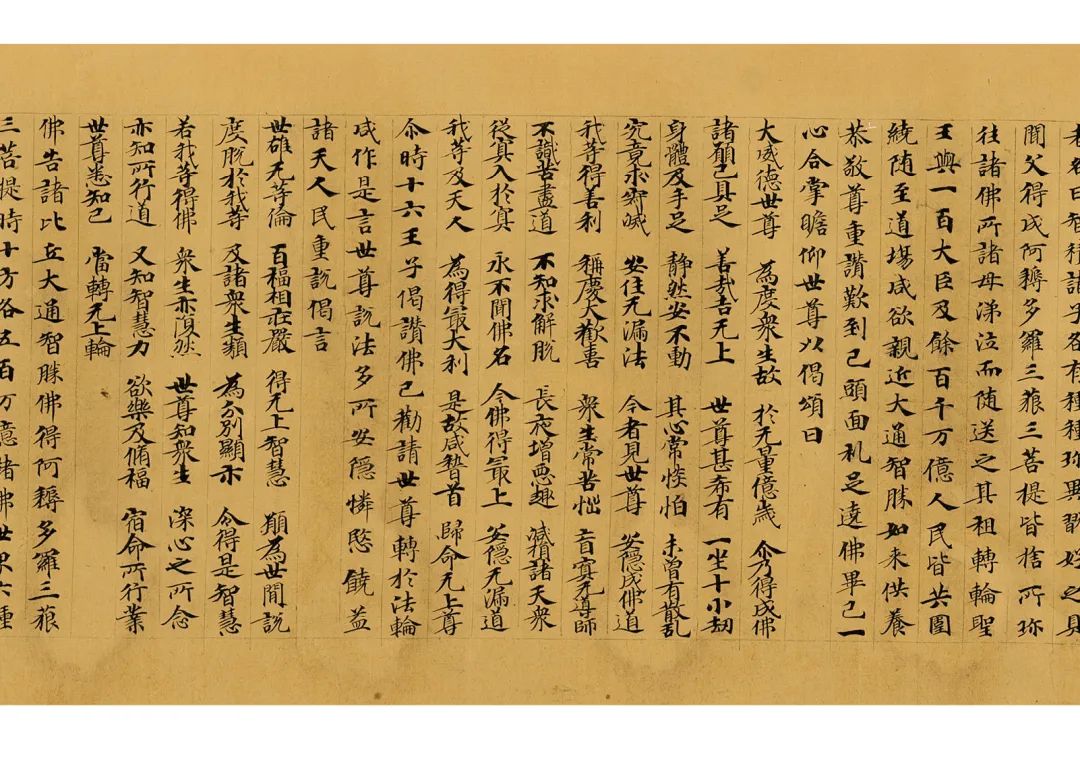 者名曰智積諸子各有種種珎異翫好之具
聞父得成阿耨多羅三藐三菩提皆捨所珎
往諸佛所諸母涕泣而随送之其祖轉輪聖
王與一百大臣及餘百千万億人民皆共圍
繞随至道塲咸欲親近大通智勝如来供養
恭敬尊重讃歎到已頭面礼足遶佛畢已一
心合掌瞻仰世尊以偈頌曰
大威德世尊 為度衆生故 於无量億歲 尒乃得成佛
諸願已具足 善哉吉无上 世尊甚希有 一坐十小劫
身體及手足 静然安不動 其心常惔怕 未曾有散乱
究竟永寂滅 安住无漏法 今者見世尊 安隱成佛道
我等得善利 稱慶大歡喜 衆生常苦惱 盲冥无導師
不識苦盡道 不知求解脱 長夜增惡趣 減損諸天衆
從冥入於冥 永不聞佛名 今佛得最上 安隱无漏道
我等及天人 為得最大利 是故咸稽首 歸命无上尊
尒時十六王子偈讃佛已勸請世尊轉於法輪
咸作是言世尊説法多所安隱憐愍饒益
諸天人民重説偈言
世雄无等倫 百福相莊嚴 得无上智慧 願為世間説
度脱於我等 及諸衆生類 為分別顯示 令得是智慧
若我等得佛 衆生亦復然 世尊知衆生 深心之所念
亦知所行道 又知智慧力 欲樂及脩福 宿命所行業
世尊悉知已 當轉无上輪
佛告諸比丘大通智勝佛得阿耨多羅三藐
三菩提時十方各五百万億諸佛世界六種